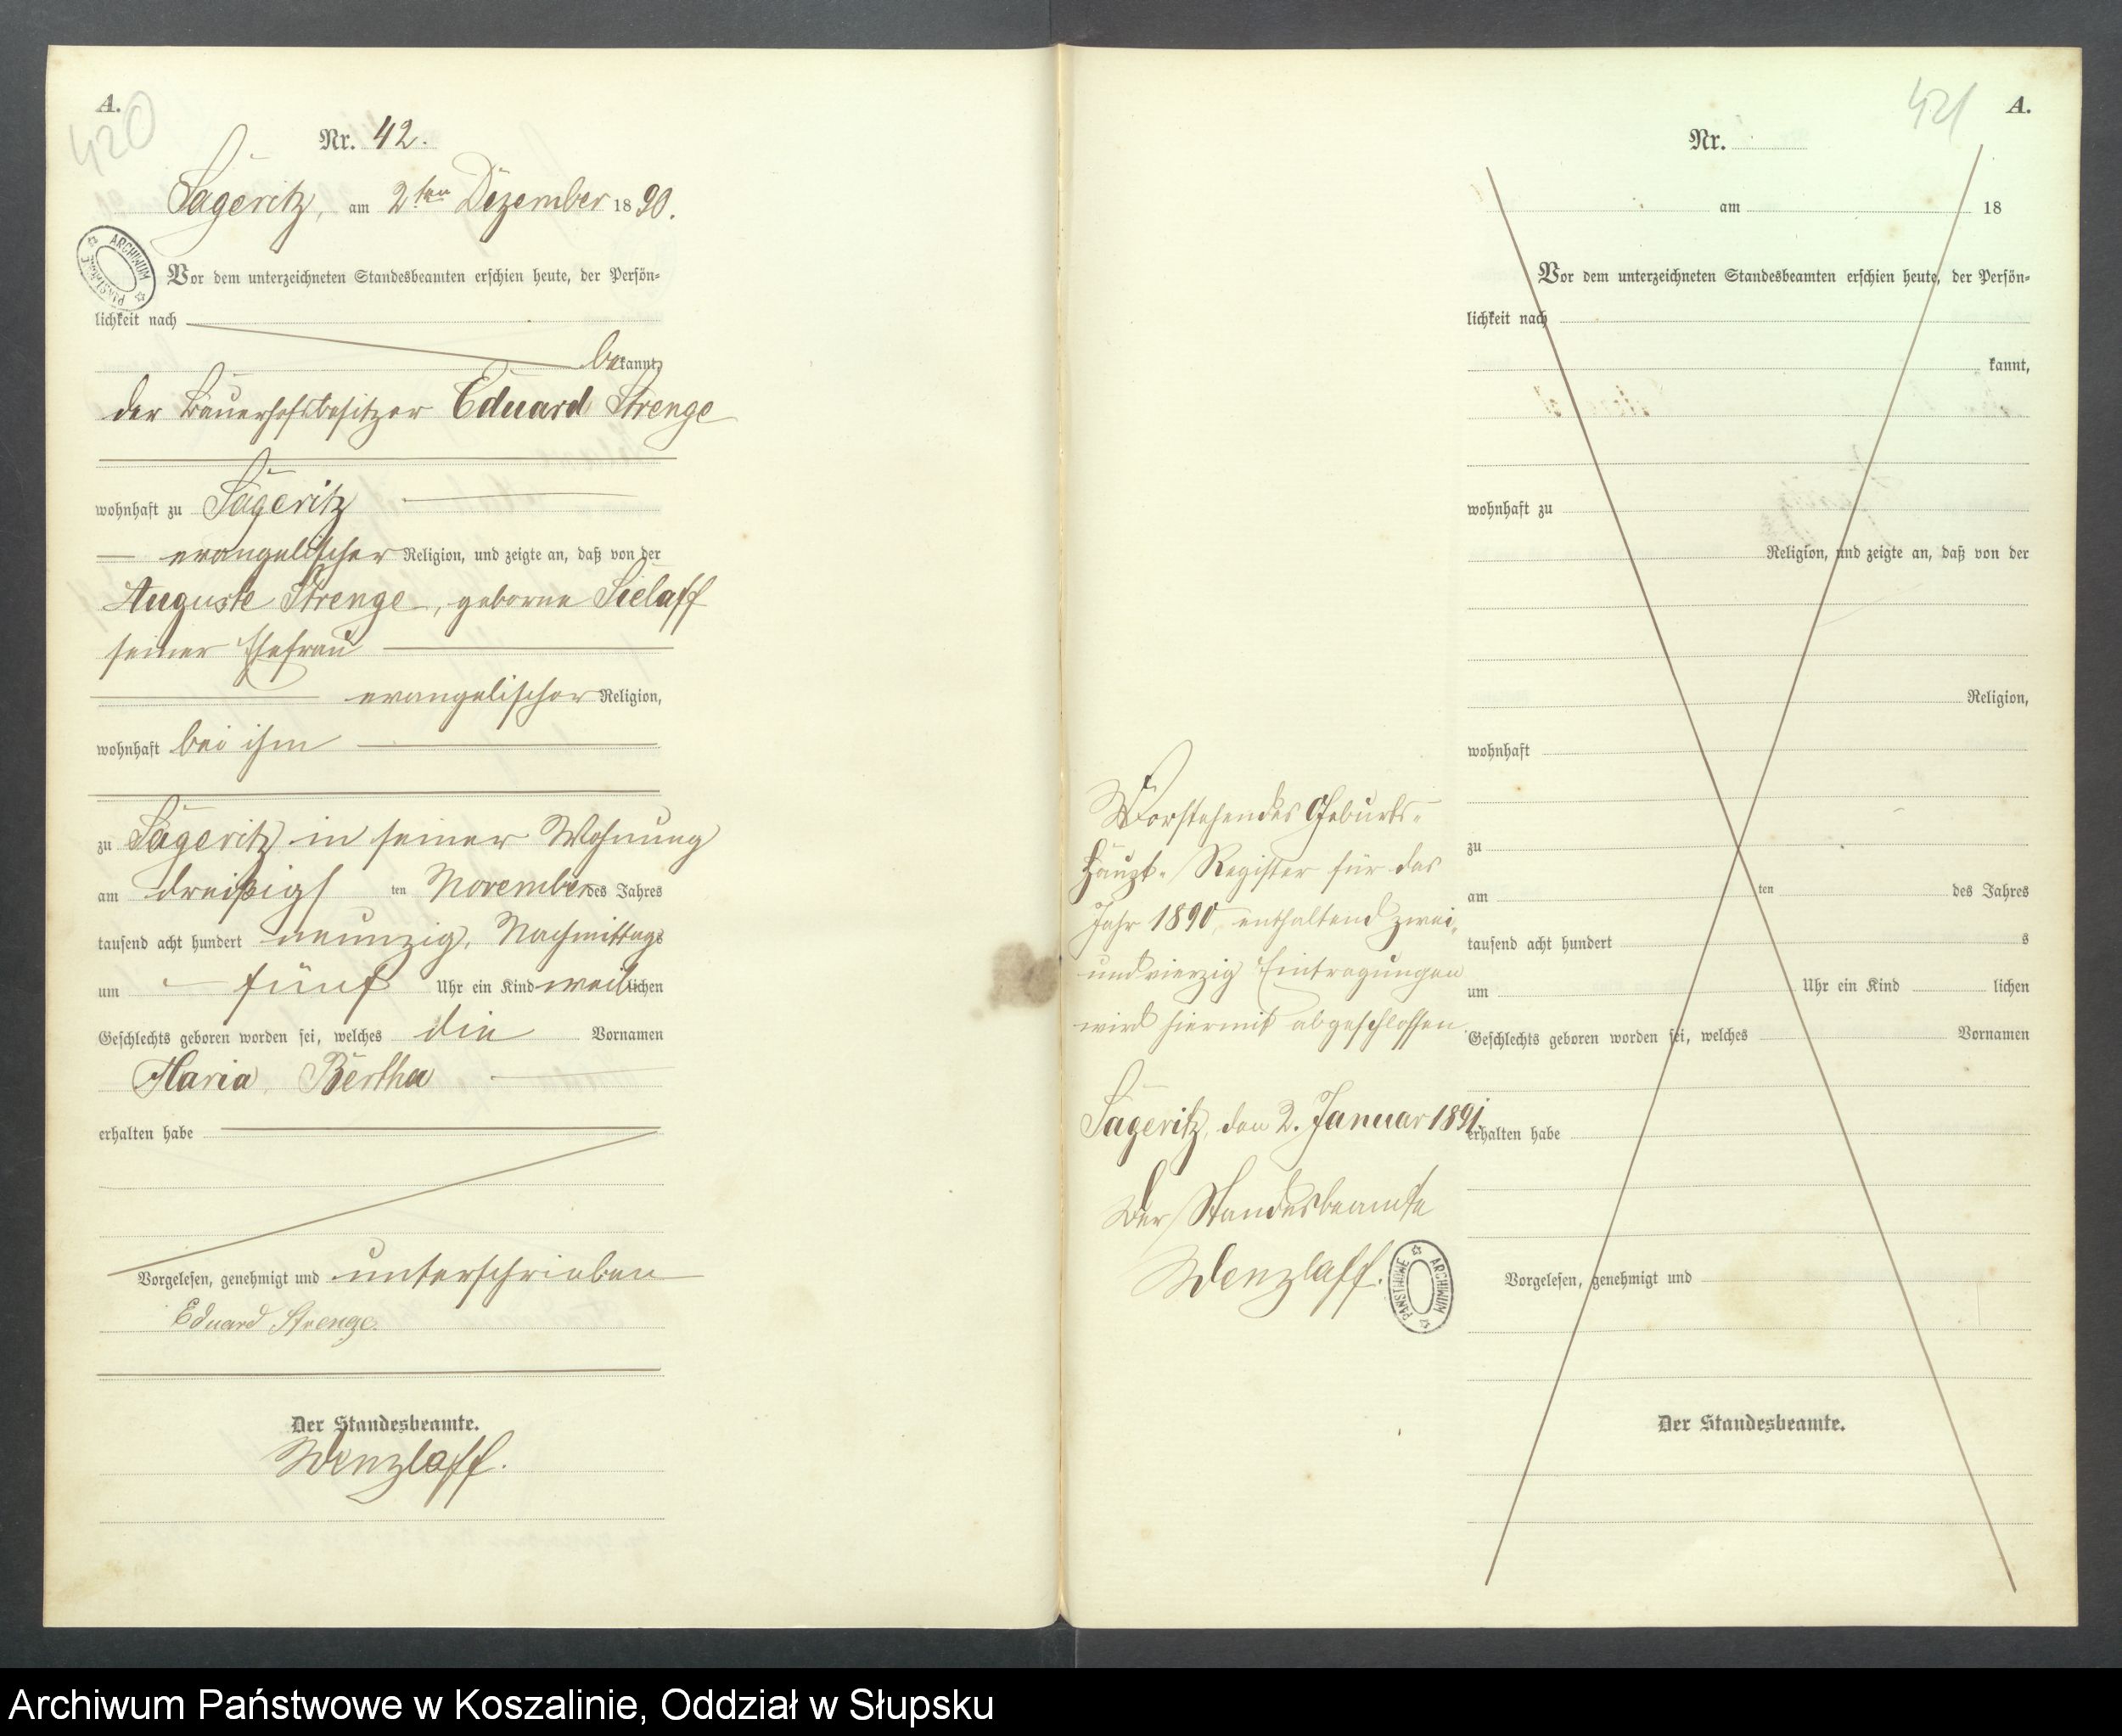 A.
420
Nr. 42.
Sageritz, am 2ten Dezember 1890.
ARCHIWUM PAŃSTWOWE
Vor dem unterzeichneten Standesbeamten erschien heute, der Persön-
lichkeit nach
bekannt,
der Bauerhofsbesitzer Eduard Strenge
wohnhaft zu Sageritz
evangelischer Religion, und zeigte an, daß von der
Auguste Strenge, geborne Sielaff
seiner Ehefrau
evangelischer Religion,
wohnhaft bei ihm
zu Sageritz in seiner Wohnung
am dreißigs ten November des Jahres
tausend acht hundert neunzig, Nachmittags
um fünf Uhr ein Kind weiblichen
Geschlechts geboren worden sei, welches die Vornamen
Maria Bertha
erhalten habe
Vorgelesen, genehmigt und unterschrieben
Eduard Strenge.
Der Standesbeamte.
Wenzlaff.
Vorstehendes Geburts-
Haupt-Register für das
Jahr 1890, enthaltend zwei-
undvierzig Eintragungen
wird hiermit abgeschlossen.
Sageritz, den 2. Januar 1891.
Der Standesbeamte
Wenzlaff.
ARCHIWUM PAŃSTWOWE
421
A.
Nr.
am 18
Vor dem unterzeichneten Standesbeamten erschien heute, der Persön-
lichkeit nach
kannt,
wohnhaft zu
Religion, und zeigte an, daß von der
Religion,
wohnhaft
zu
am ten des Jahres
tausend acht hundert s
um Uhr ein Kind lichen
Geschlechts geboren worden sei, welches Vornamen
erhalten habe
Vorgelesen, genehmigt und
Der Standesbeamte.
Archiwum Państwowe w Koszalinie, Oddział w Słupsku